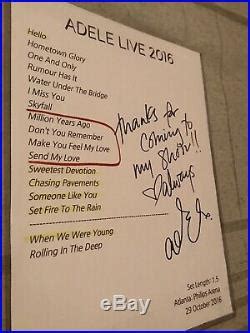 ADELE LIVE 2016
Hello
Hometown Glory
One And Only
Rumour Has It
Water Under The Bridge
I Miss You
Skyfall
Million Years Ago
Don't You Remember
Make You Feel My Love
Send My Love
Sweetest Devotion
Chasing Pavements
Someone Like You
Set Fire To The Rain
When We Were Young
Rolling In The Deep
thanks for
coming to
my show!!
always
adele
Set Length: 1.5
Atlanta- Philips Arena
29 October 2016